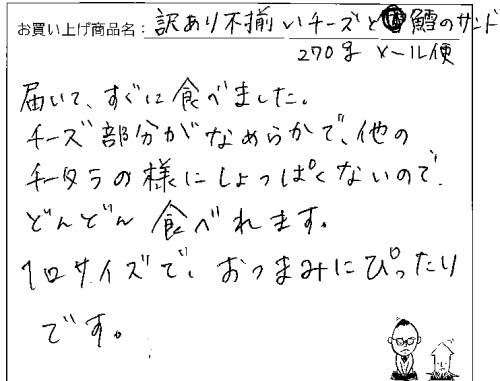 お買い上げ商品名：訳あり不揃いチーズと鱈のサンド
270g メール便
届いて、すぐに食べました。
チーズ部分がなめらかで、他の
チータラの様にしょっぱくないので
どんどん食べれます。
1口サイズで、おつまみにぴったり
です。